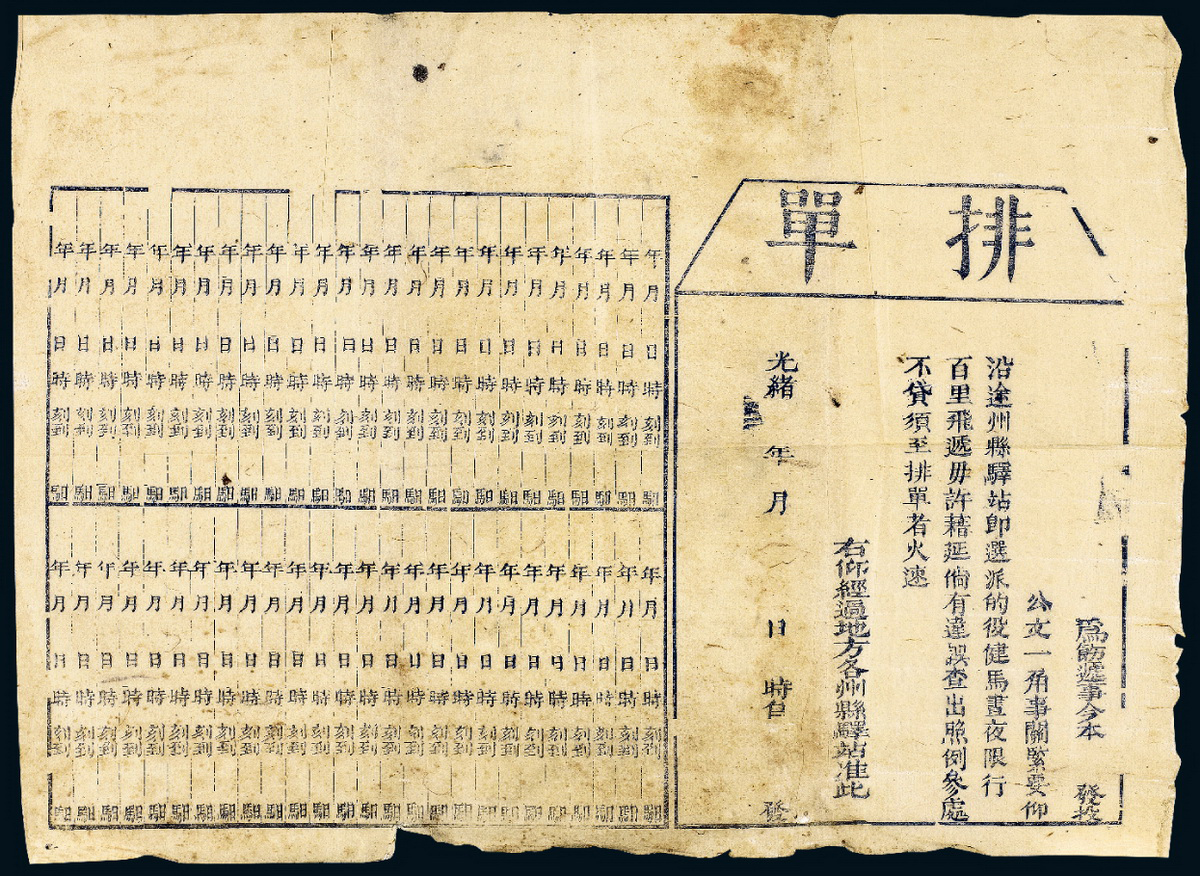 排單
爲飭遞事今本 發投
公文一角事關緊要仰
沿途州縣驛站卽選派的役健馬晝夜限行
百里飛遞毋許藉延倘有違誤查出照例參處
不貸須至排單者火速
右仰經過地方各州縣驛站准此
光緒 年 月 日 時 發
年 月 日 時 刻到 馹
年 月 日 時 刻到 馹
年 月 日 時 刻到 馹
年 月 日 時 刻到 馹
年 月 日 時 刻到 馹
年 月 日 時 刻到 馹
年 月 日 時 刻到 馹
年 月 日 時 刻到 馹
年 月 日 時 刻到 馹
年 月 日 時 刻到 馹
年 月 日 時 刻到 馹
年 月 日 時 刻到 馹
年 月 日 時 刻到 馹
年 月 日 時 刻到 馹
年 月 日 時 刻到 馹
年 月 日 時 刻到 馹
年 月 日 時 刻到 馹
年 月 日 時 刻到 馹
年 月 日 時 刻到 馹
年 月 日 時 刻到 馹
年 月 日 時 刻到 馹
年 月 日 時 刻到 馹
年 月 日 時 刻到 馹
年 月 日 時 刻到 馹
年 月 日 時 刻到 馹
年 月 日 時 刻到 馹
年 月 日 時 刻到 馹
年 月 日 時 刻到 馹
年 月 日 時 刻到 馹
年 月 日 時 刻到 馹
年 月 日 時 刻到 馹
年 月 日 時 刻到 馹
年 月 日 時 刻到 馹
年 月 日 時 刻到 馹
年 月 日 時 刻到 馹
年 月 日 時 刻到 馹
年 月 日 時 刻到 馹
年 月 日 時 刻到 馹
年 月 日 時 刻到 馹
年 月 日 時 刻到 馹
年 月 日 時 刻到 馹
年 月 日 時 刻到 馹
年 月 日 時 刻到 馹
年 月 日 時 刻到 馹
年 月 日 時 刻到 馹
年 月 日 時 刻到 馹
年 月 日 時 刻到 馹
年 月 日 時 刻到 馹
年 月 日 時 刻到 馹
年 月 日 時 刻到 馹
年 月 日 時 刻到 馹
年 月 日 時 刻到 馹